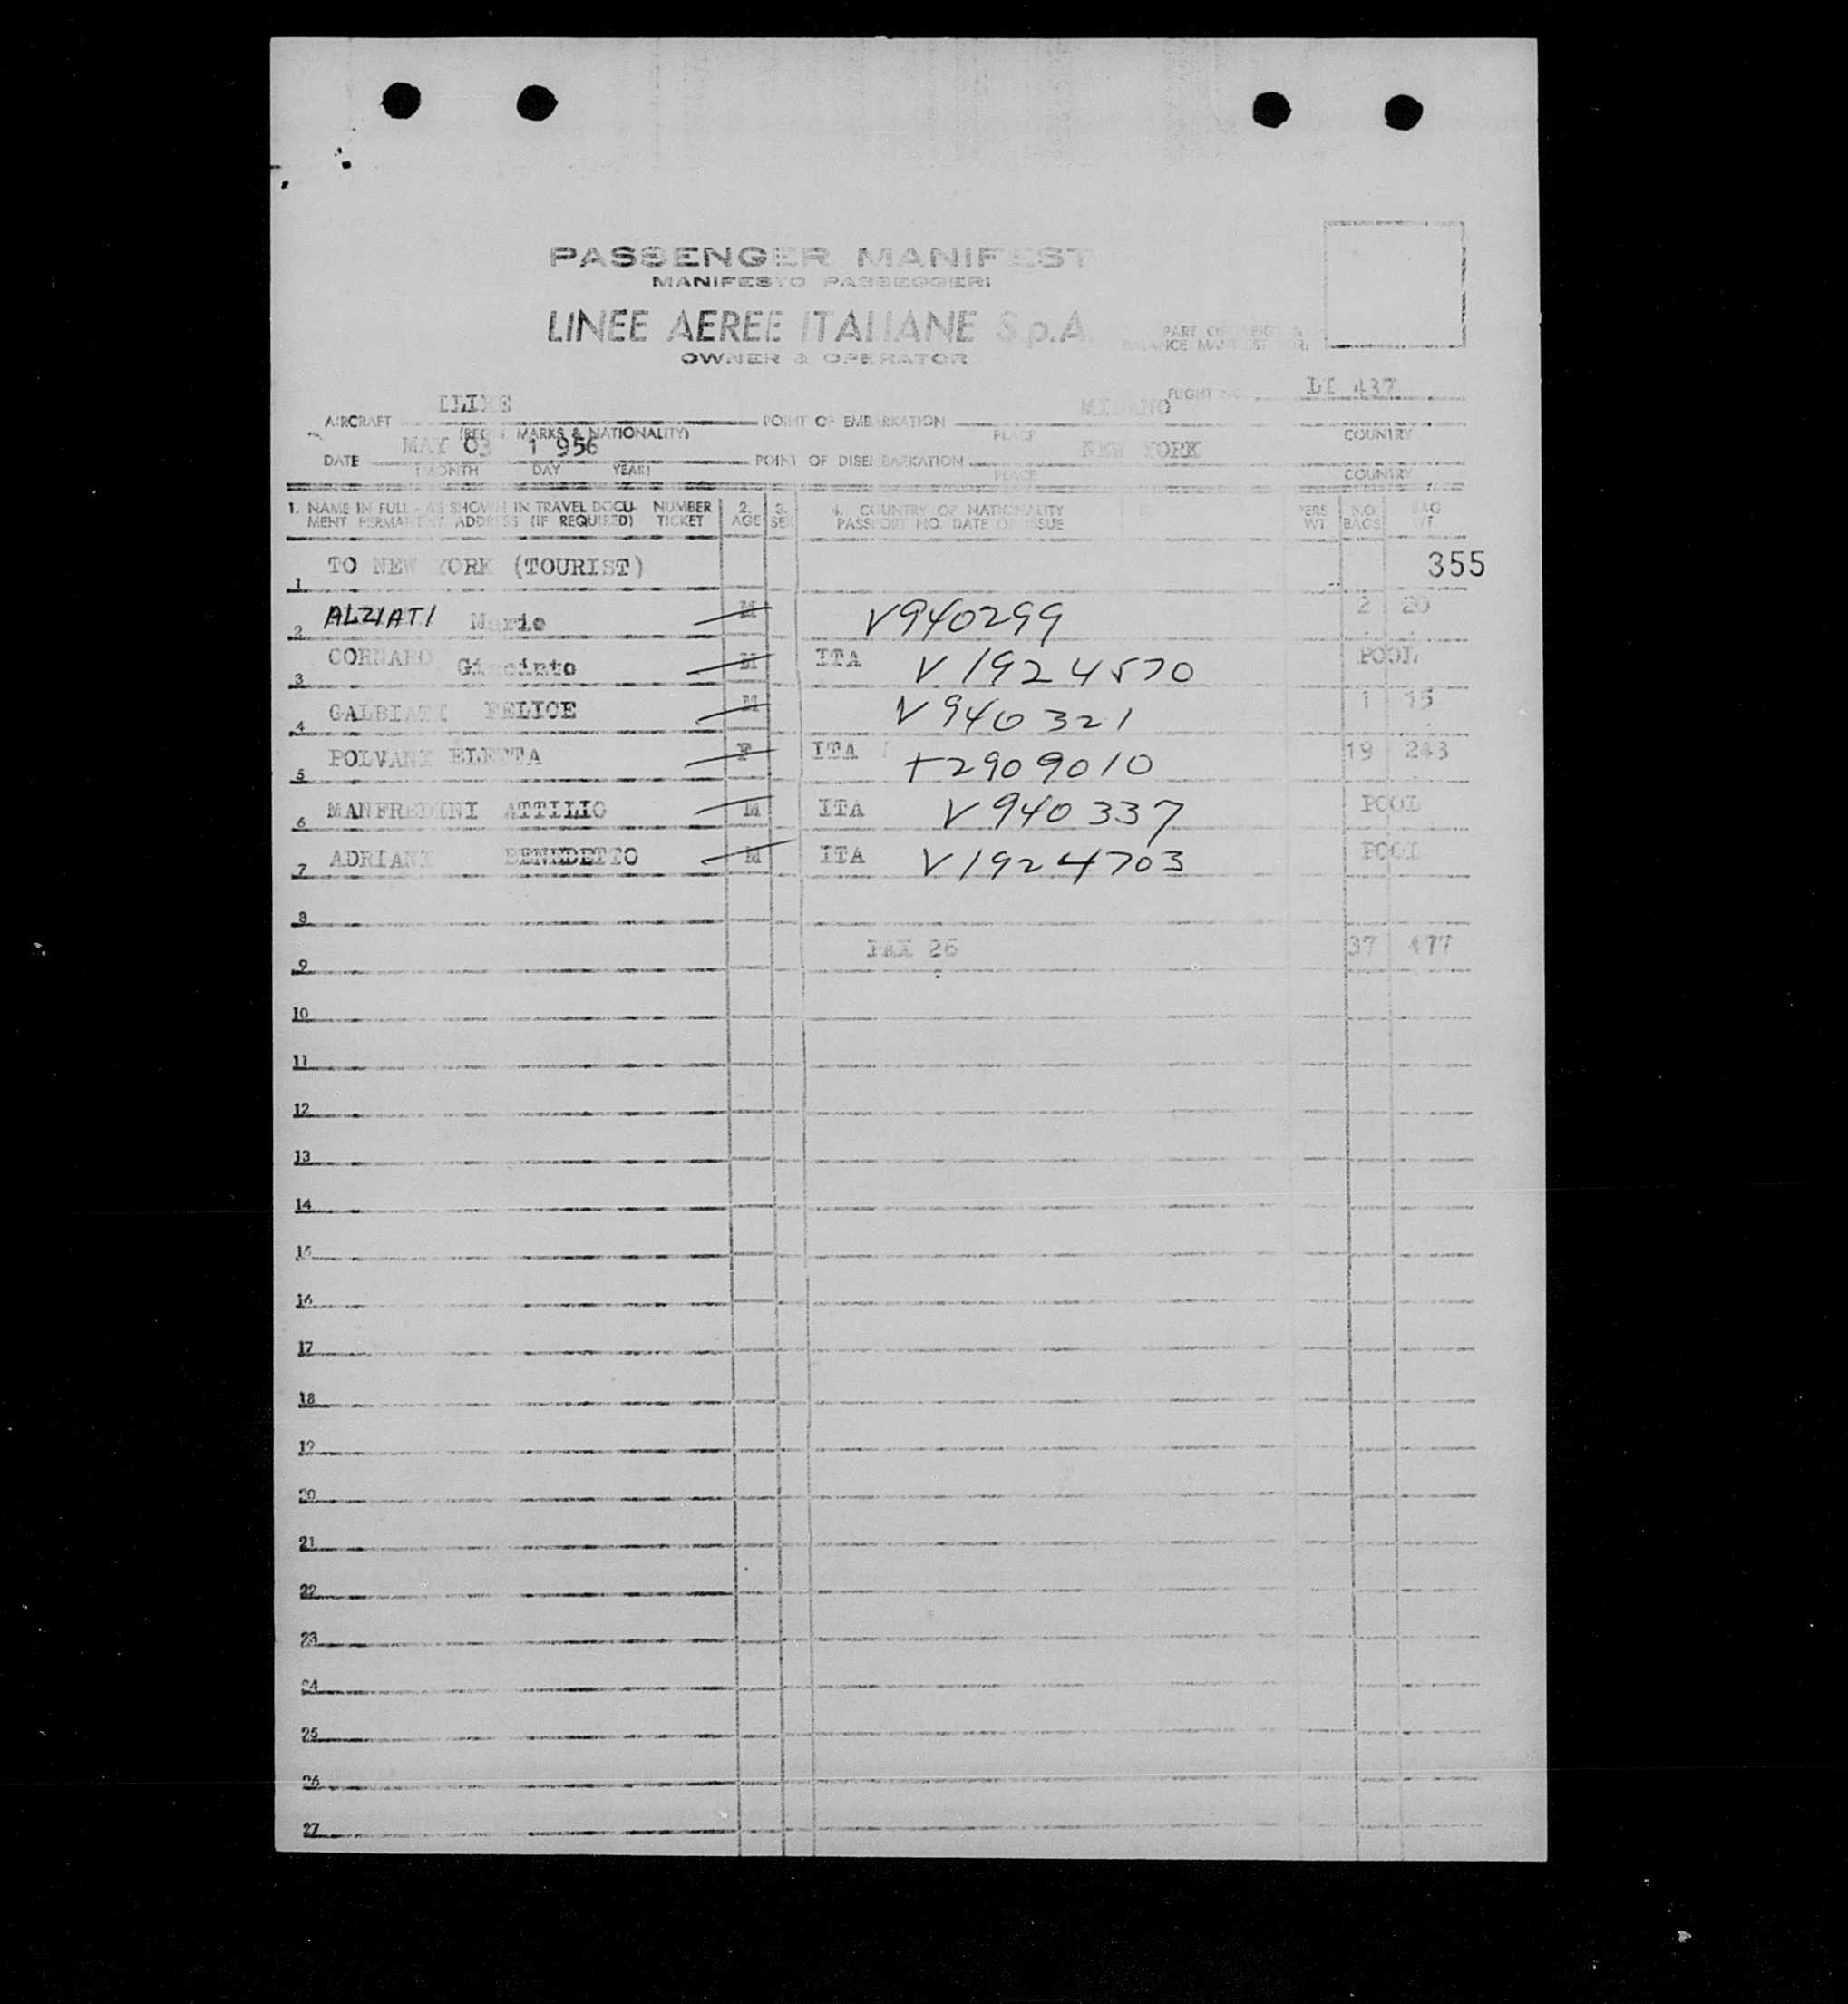 PASSENGER MANIFEST
MANIFESTO PASSEGGERI
LINEE AEREE ITALIANE S.p.A.
OWNER & OPERATOR
PART OF WEIGHT &
BALANCE MANIFEST FOR:
FLIGHT NO. LI 437
AIRCRAFT POINT OF EMBARKATION MILANO
(REG. MARKS & NATIONALITY) PLACE COUNTRY
DATE MAY 03 1 956 POINT OF DISEMBARKATION NEW YORK
(MONTH DAY YEAR) PLACE COUNTRY
1. NAME IN FULL - AS SHOWN IN TRAVEL DOCU- NUMBER 2. 3. 4. COUNTRY OF NATIONALITY PERS NO BAG.
MENT PERMANENT ADDRESS (IF REQUIRED) TICKET AGE SEX PASSPORT NO. DATE OF ISSUE WT. BAGS WT.
1 TO NEW YORK (TOURIST) 355
2 ALZIATI Mario M V940299 2 20
3 CORNARO Giacinto M ITA V1924570 POOL
4 GALBIATI FELICE M V940321 1 15
5 POLVANI ELETTA F ITA +2909010 19 243
6 MANFREDINI ATTILIO M ITA V940337 POOL
7 ADRIANI BENEDETTO M ITA V1924703 POOL
8
9 PAX 26 37 477
10
11
12
13
14
15
16
17
18
19
20
21
22
23
24
25
26
27